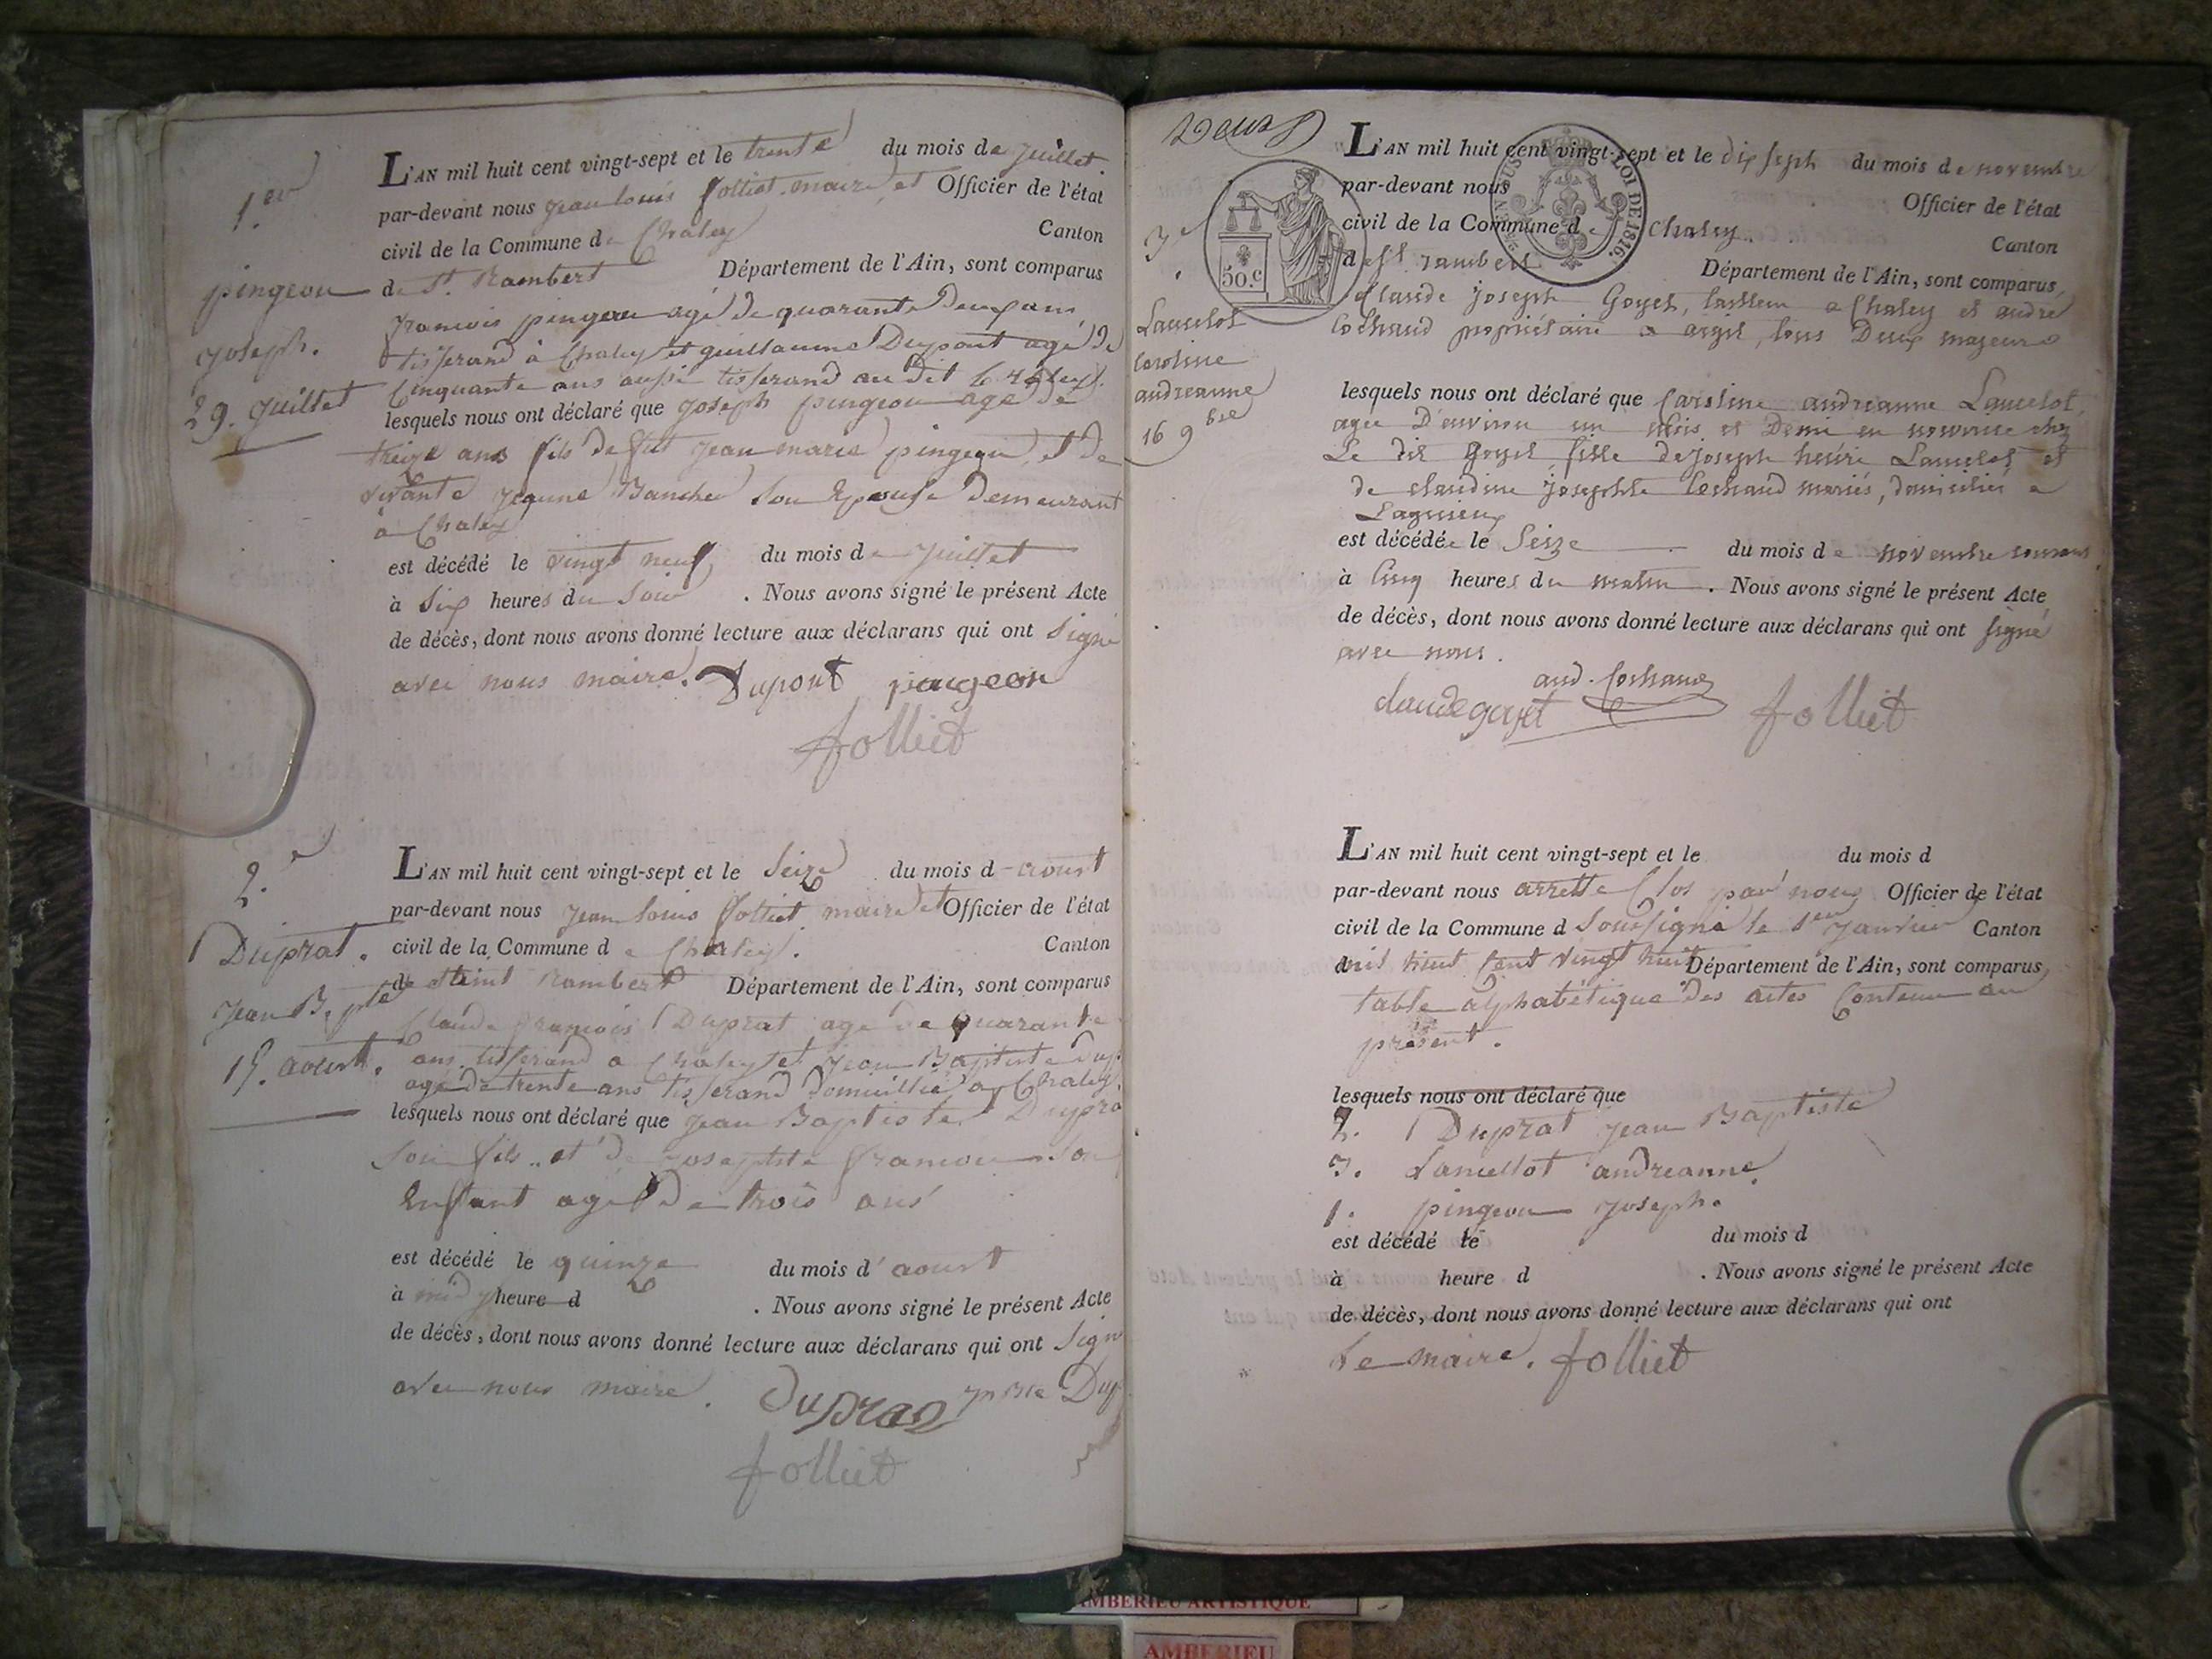 1.er
pingeon
joseph.
29. juillet
L'AN mil huit cent vingt-sept et le trente du mois de juillet
par-devant nous jean louis folliet maire et Officier de l'état
civil de la Commune de Chaley Canton
de St. Rambert Département de l'Ain, sont comparus
francois pingeon agé de quarante deux ans,
tisserand à Chaley et guillaume Dupont agé de
Cinquante ans aussi tisserand au dit Chaley.
lesquels nous ont déclaré que joseph pingeon agé de
treize ans fils de fut jean marie pingeon, et de
vivante jeanne Banchet son Epouse demeurant
à Chaley
est décédé le vingt neuf du mois de juillet
à Six heures du Soir . Nous avons signé le présent Acte
de décès, dont nous avons donné lecture aux déclarans qui ont Signé
avec nous maire. Dupont pingeon
folliet
2.e
Duprat.
jean B.pte
15. aoust.
L'AN mil huit cent vingt-sept et le Seize du mois d aoust
par-devant nous jean louis folliet maire et Officier de l'état
civil de la Commune de Chaley. Canton
de Rambert Département de l'Ain, sont comparus
Claude francois Duprat agé de quarante
ans tisserand a Chaley et jean Baptiste Dup
agé de trente ans tisserand domicillié a Chaley.
lesquels nous ont déclaré que jean Baptiste Dupra
son fils et de josephte francon son
Enfant agé de trois ans
est décédé le quinze du mois d'aoust
à midy heure d . Nous avons signé le présent Acte
de décès, dont nous avons donné lecture aux déclarans qui ont Sign
avec nous maire. Duprat jn Bte Dup
folliet
Deux
50.c
LOI DE 1816.
3e
Lancelot
caroline
andreanne
16 9bre
L'AN mil huit cent vingt-sept et le dix sept du mois de novembre
par-devant nous Officier de l'état
civil de la Commune de Chaley Canton
de St rambert Département de l'Ain, sont comparus
Claude joseph Goyet, a Chaley et andré
Cochaud propriétaire a argis, tous Deux majeurs
lesquels nous ont déclaré que Caroline andreanne Lancelot
agée D'environ un mois et Demi en nourrice chez
Le dit Goyet fille de joseph henri Lancelot et
de claudine josephte Cochaud mariés, domiciliés a
Lagnieux
est décédée le Seize du mois de novembre courant
à Cinq heures du matin . Nous avons signé le présent Acte
de décès, dont nous avons donné lecture aux déclarans qui ont signé
avec nous.
and. Cochaud
claude goyet folliet
L'AN mil huit cent vingt-sept et le du mois d
par-devant nous arretté Clos par nous Officier de l'état
civil de la Commune d Soussigné le 1er janvier Canton
mil huit Cent vingt huit Département de l'Ain, sont comparus
table alphabétique des actes Contenu au
présent.
lesquels nous ont déclaré que
2. Duprat jean Baptiste
3. Lancellot andreanne.
1. pingeon joseph.
est décédé le du mois d
à heure d . Nous avons signé le présent Acte
de décès, dont nous avons donné lecture aux déclarans qui ont
Le maire. folliet
AMBERIEU ARTISTIQUE
AMBERIEU